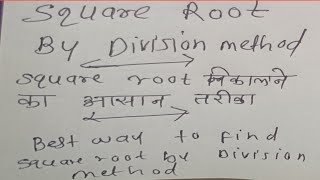 Square Root
By Division method
square root निकालने
का आसान तरीका
Best way to find
square root by Division
method